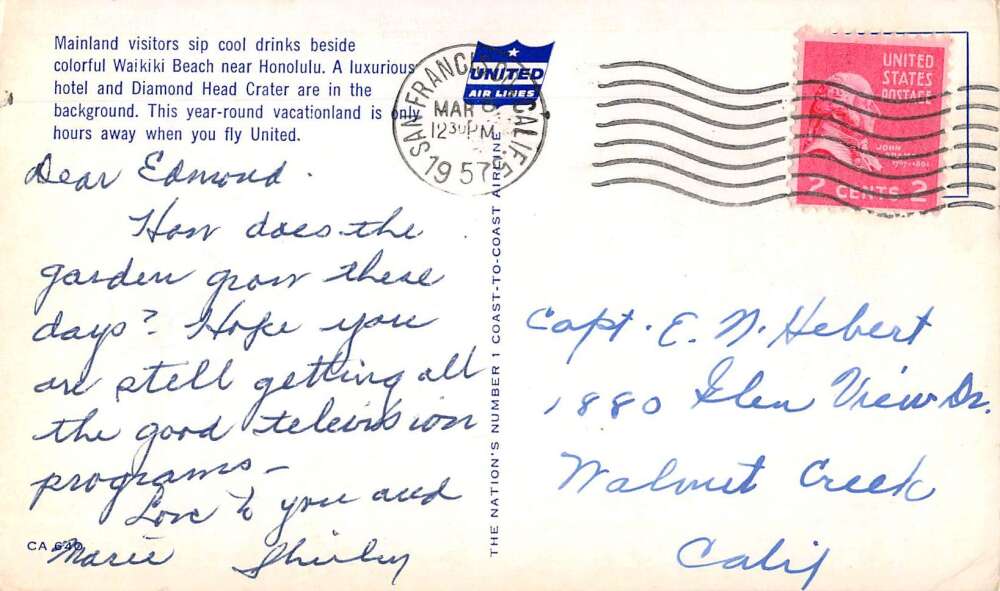 Mainland visitors sip cool drinks beside
colorful Waikiki Beach near Honolulu. A luxurious
hotel and Diamond Head Crater are in the
background. This year-round vacationland is only
hours away when you fly United.
UNITED
AIR LINES
SAN FRANCISCO, CALIF.
MAR
12 30 PM
1957
UNITED
STATES
POSTAGE
JOHN
ADAMS
2 CENTS 2
Dear Edmond.
How does the
garden grow these
days? Hope you
are still getting all
the good television
programs—
Love to you and
Marie Shirley
CA 640
THE NATION'S NUMBER 1 COAST-TO-COAST AIRLINE
Capt. E. N. Hebert
1880 Glen View Dr.
Walnut Creek
Calif